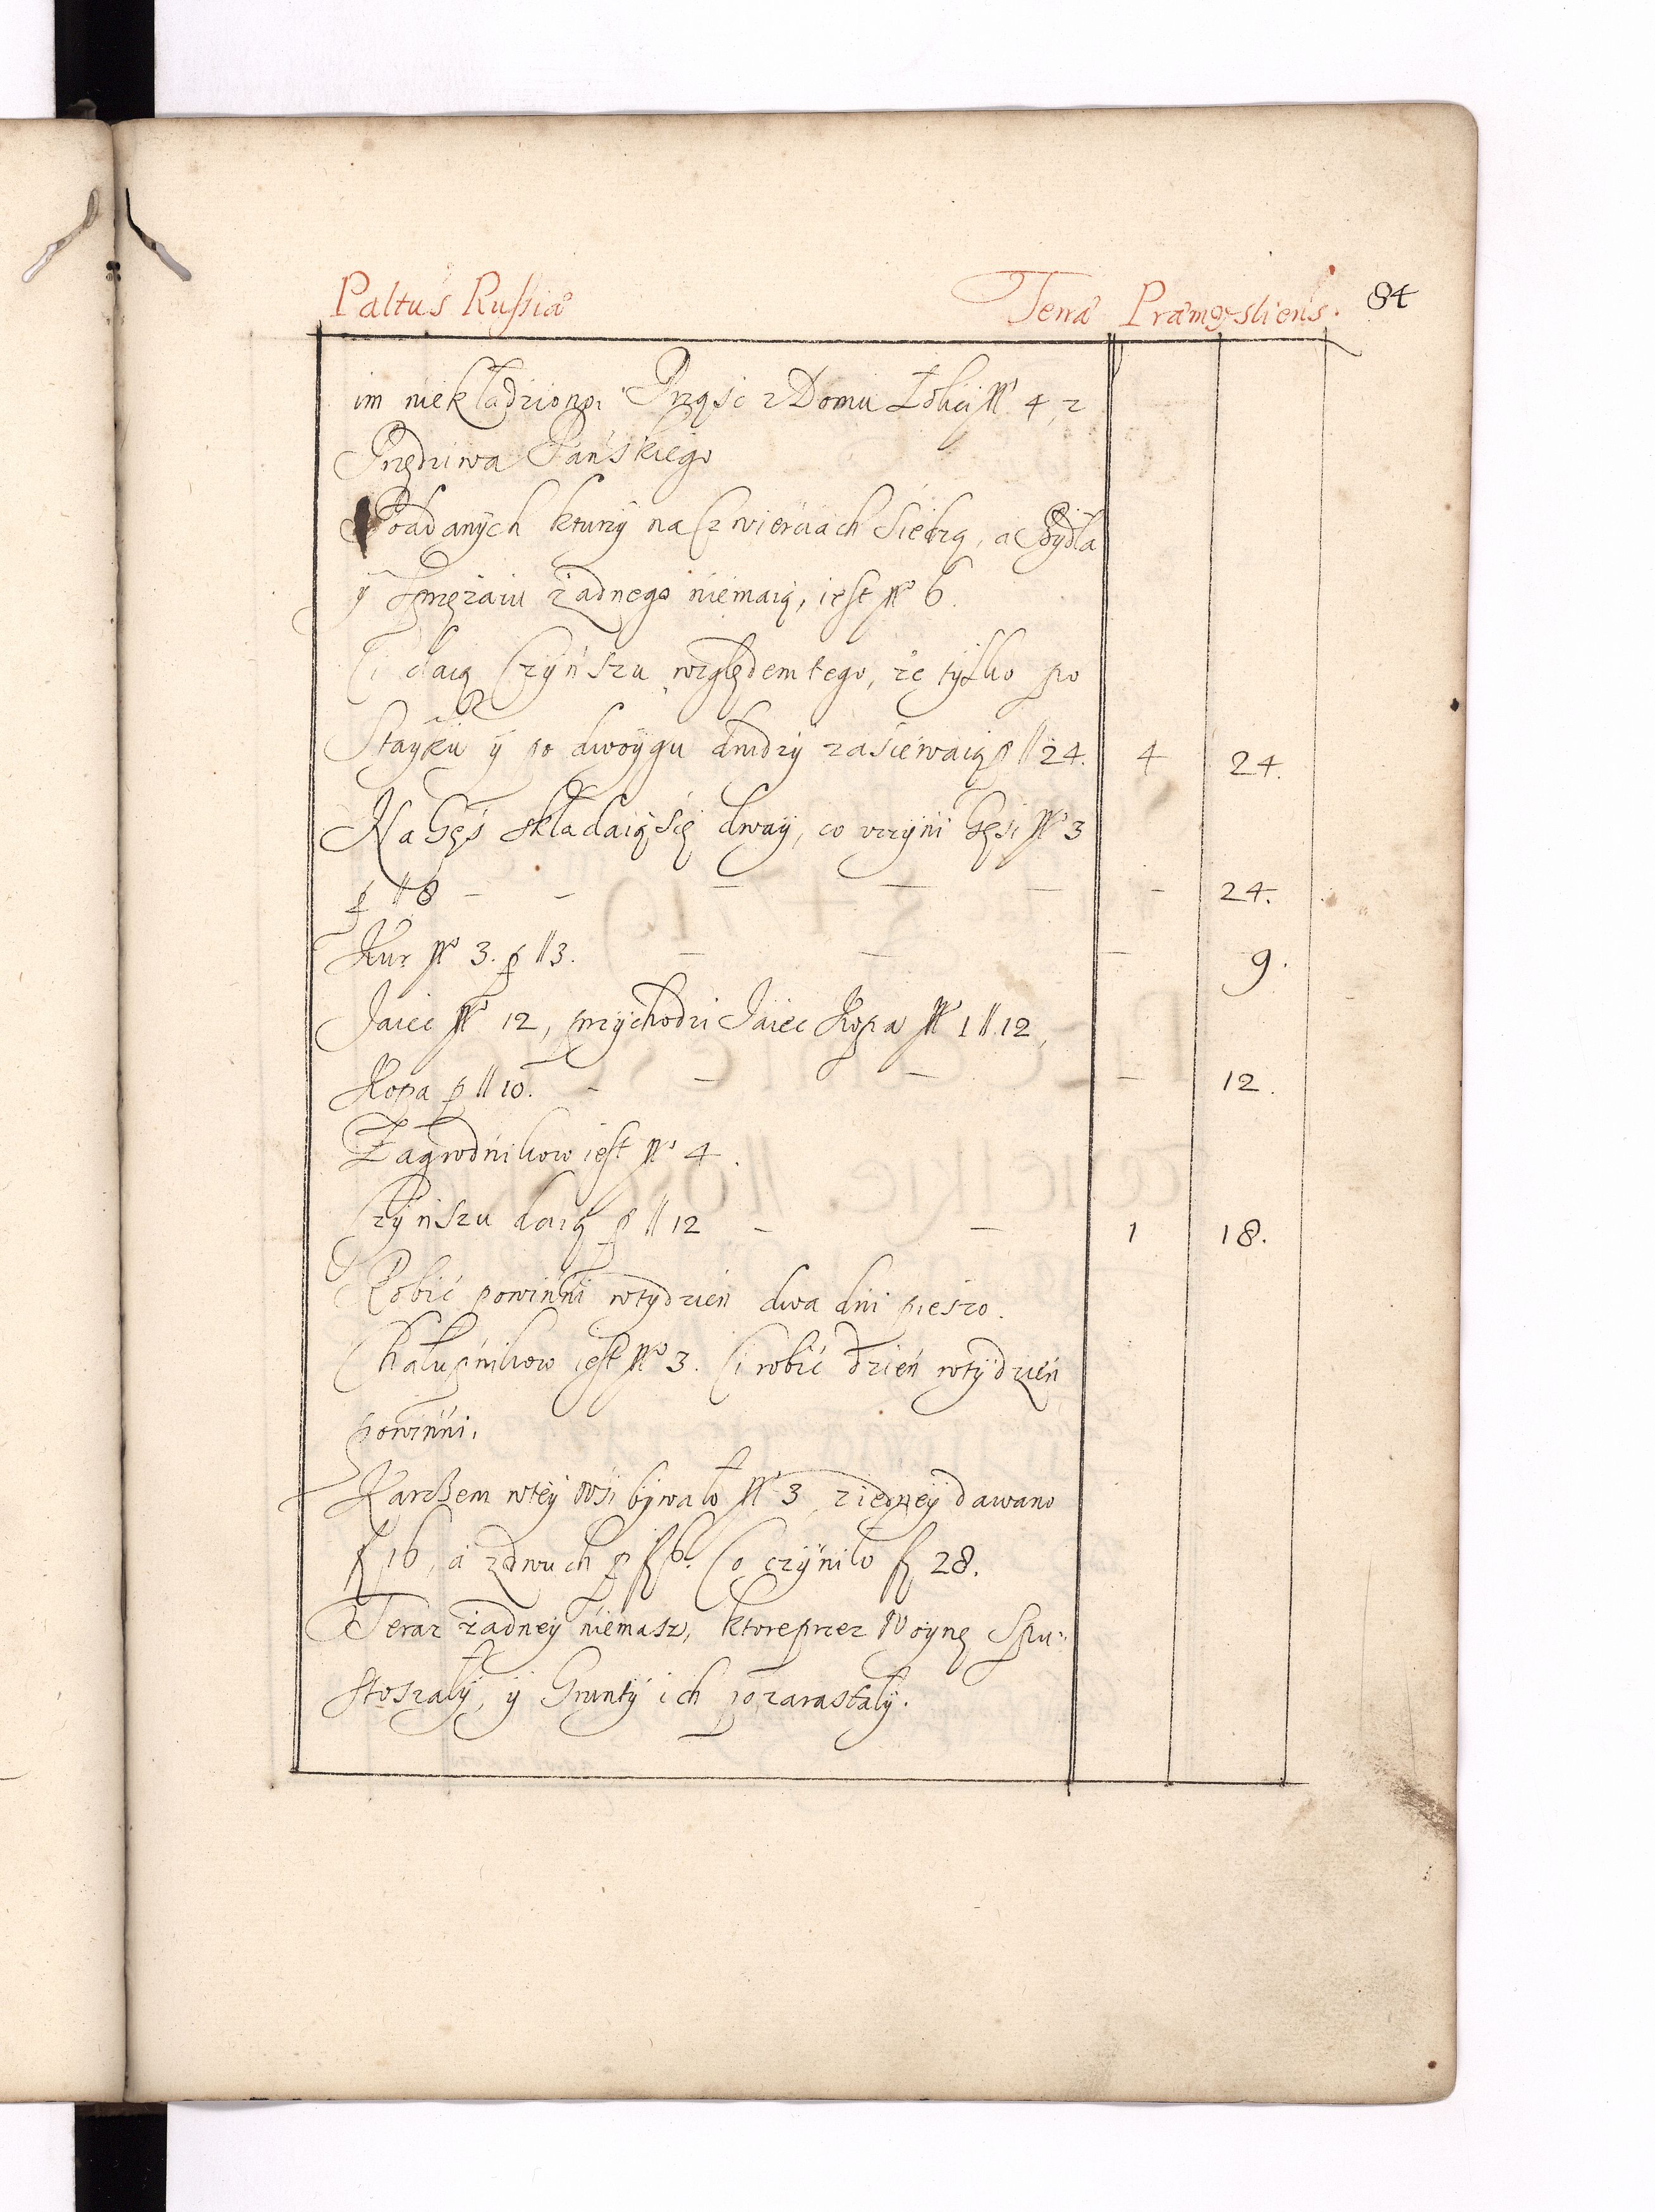 Paltus Russiæ Terræ Præmysliens. 84
im niekładziono. Prząsć z Domu Łokci Nº 4, z
Przędziwa Pańskiego
Poddanych ktorzy na Czwierciach Siedzą, a Bydła
ÿ Sprzęzaiu żadnego niemaią, iest Nº 6.
Ci daią Czÿnszu względem tego, że tÿlko po
Stayku ÿ po dwoÿgu drudzÿ zasiewaią p ǁ 24. 4 24.
Na Gęś składaią się dwaÿ, co vczÿni Gęsi Nº 3
p ǁ 8 - - - - - - 24.
Kur Nº 3. p ǁ 3. - - - 9.
Jaiec Nº 12, przÿchodzi Jaiec Kopa Nº 1 ǁ 12,
Kopa p ǁ 10. - - - - 12.
Zagrodnikow iest Nº 4.
Czÿnszu daią p ǁ 12 - - 1 18.
Robić powinni wtydzień dwa dni pieszo.
Chałupnikow iest Nº 3. Ci robić dzień wtÿdzień
powinni.
Karczem wteÿ Wsi bÿwało Nº 3, z iedneÿ dawano
f 16, a zdwuch p f 6. Co czÿniło f 28.
Teraz żadneÿ niemasz, ktore przez Woÿnę Spu-
stoszałÿ, ÿ Gruntÿ ich pozarastałÿ.